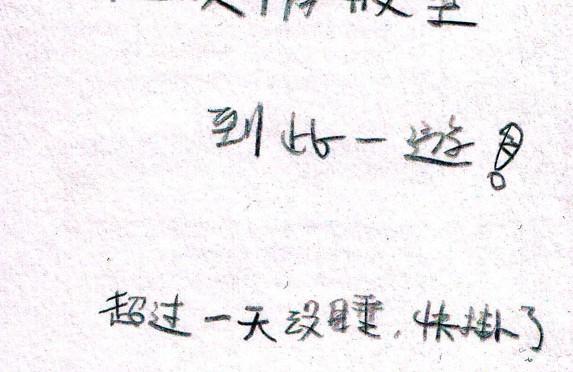 到此一遊!
超过一天没睡,快掛了